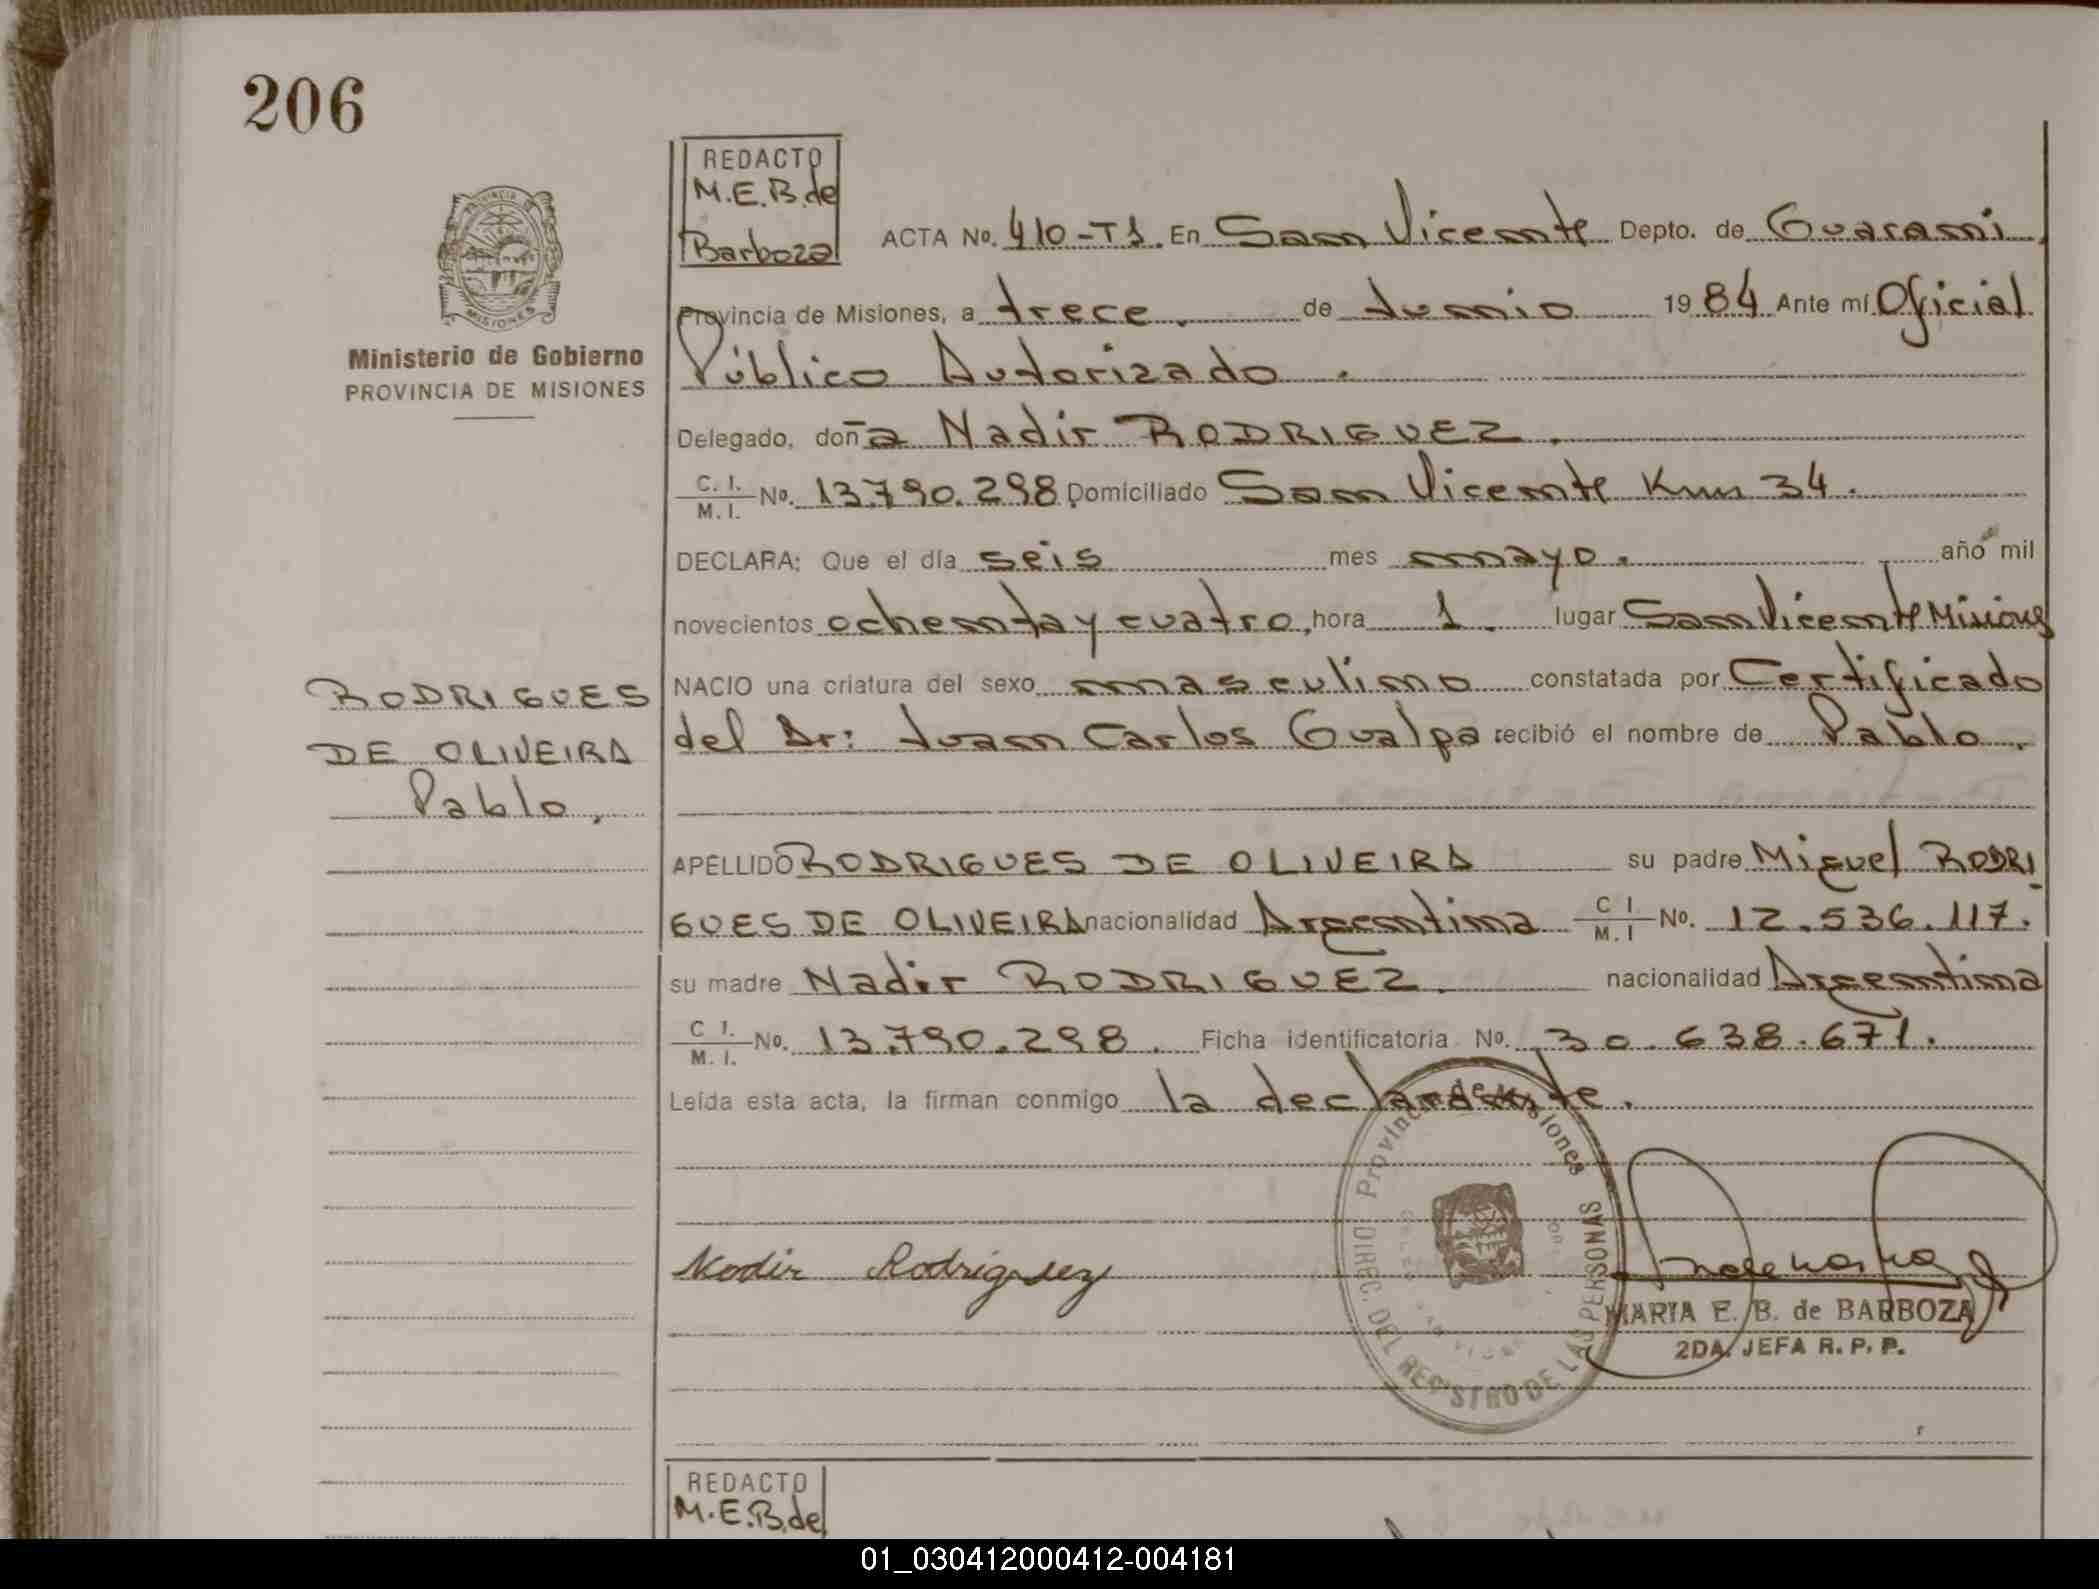 206
REDACTO
M.E.B. de
Barboza
PROVINCIA DE
MISIONES
Ministerio de Gobierno
PROVINCIA DE MISIONES
ACTA No. 410-T1. En San Vicente Depto. de Guarani,
Provincia de Misiones, a trece. de Junio 1984 Ante mí Oficial
Público Autorizado.
Delegado, doña Nadir RODRIGUEZ.
C. I.
M. I. No. 13.790.298. Domiciliado San Vicente Km 34.
DECLARA: Que el día seis mes mayo. año mil
novecientos ochenta y cuatro, hora 1. lugar San Vicente Misiones
NACIO una criatura del sexo masculino constatada por Certificado
del Dr: Juan Carlos Gualpa recibió el nombre de Pablo.
RODRIGUES
DE OLIVEIRA
Pablo,
APELLIDO RODRIGUES DE OLIVEIRA su padre Miguel RODRI
GUES DE OLIVEIRA nacionalidad Argentina C I.
M. I No. 12.536.117.
su madre Nadir RODRIGUEZ. nacionalidad Argentina
C I.
M. I. No. 13.790.298. Ficha identificatoria No. 30.638.671.
Leída esta acta, la firman conmigo la declarante.
Provincia de Misiones
DIREC. DEL REGISTRO DE LAS PERSONAS
Nadir Rodriguez
MARIA E. B. de BARBOZA
2DA. JEFA R. P. P.
REDACTO
M.E.B. de
01_030412000412-004181